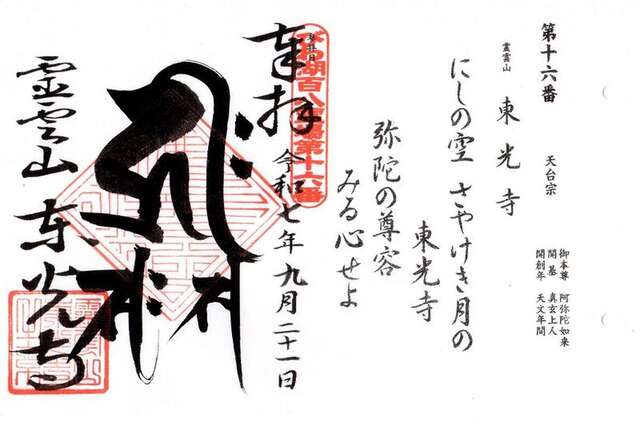 第十六番　天台宗
霊雲山　東光寺
御本尊　阿弥陀如来
開基　真玄上人
開創年　天文年間
にしの空　さやけき月の
東光寺
弥陀の尊容
みる心せよ
びわ湖百八霊場第十六番
奉拝　令和七年九月二十一日
霊雲山　東光寺